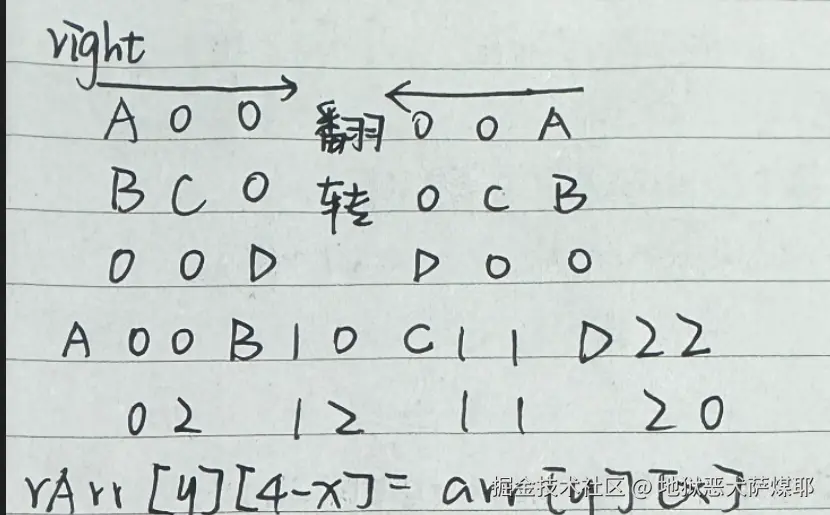 right
A 0 0 翻 0 0 A
B C 0 转 0 C B
0 0 D D 0 0
A 0 0 B 1 0 C 1 1 D 2 2
0 2 1 2 1 1 2 0
rArr [y][4-x] = arr[y][x]
掘金技术社区 @ 地狱恶犬萨煤耶